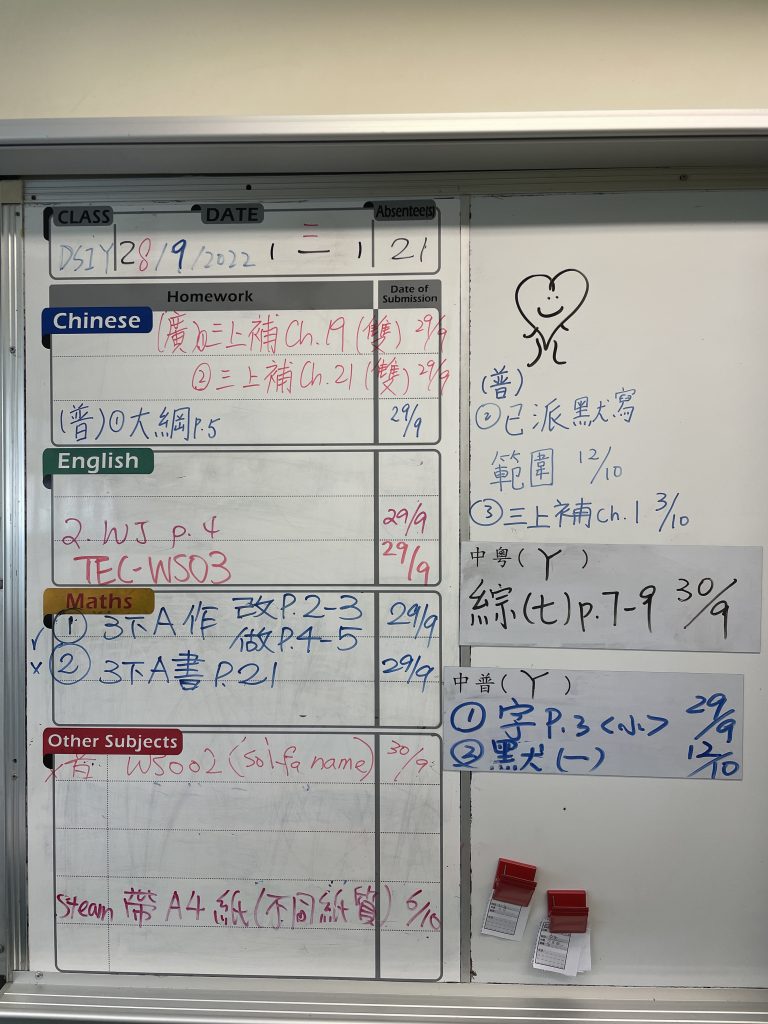 CLASS DATE Absentee(s)
DSIY 28/9/2022 (三) 21
Homework Date of Submission
Chinese
(廣)①三上補Ch.19(雙) 29/9
②三上補Ch.21(雙) 29/9
(普)①大綱p.5 29/9
English
2. WJ p.4 29/9
TEC-WS03 29/9
Maths
✓ ① 3下A作 改P.2-3 29/9
做P.4-5
x ② 3下A書P.21 29/9
Other Subjects
音 WS002 (sol-fa name) 30/9
Steam 帶A4紙(不同紙質) 6/10
(普)
②已派默寫
範圍 12/10
③三上補Ch.1 3/10
中粵(丫)
綜(七)p.7-9 30/9
中普(丫)
①字P.3<小> 29/9
②默(一) 12/10